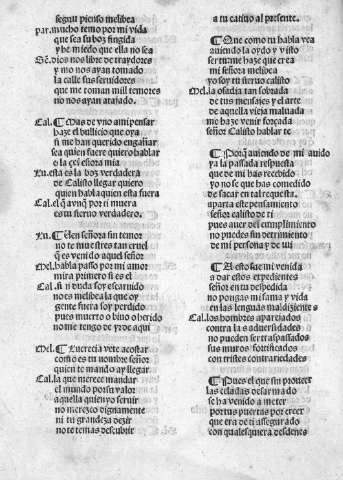 segun pienso melibea
Par. mucho temo por mi vida
que sea su boz fingida
y he miedo que ella no sea
Se. dios nos libre de traydores
y mo nos ayan tomado
la calle sus seruidores
que me toman mill temores
no nos ayan atajado.
Cal. Mas de vno ami pensar
haze el bullicio que oya
si me han querido engañar
sea quien fuere quiero hablar
o la çe señora mia
Lu. esta es la boz verdadera
de Calisto llegar quiero
quien habla quien esta fuera
Cal. el que avnq̃ por ti muera
es tu sieruo verdadero.
Lu. Uen señora sin temor
no te muestres tan cruel
q̃ es venido aquel señor
Mel. habla passo por mi amor
mira primero si es el
Cal. sin duda soy escarnido
no es melibea la que oy
gente fuera soy perdido
pues muerto o biuo o herido
no me tengo de yr de aqui
Mel. Lucrecia vete acostar
como es tu nombre señor
quien te mando ay llegar
Cal. la que merece mandar
el mundo por su valor
aquella quien yo seruir
no merezco dignamente
ni tu grandeza dezir
no te temas descubrir
a tu catiuo al presente.
Que como tu habla vea
auiendo la oydo y visto
ser tu me haze que crea
mi señora melibea
yo soy tu sieruo calisto
Mel. la osadia tan sobrada
de tus mensajes y el arte
de aquella vieja maluada
me haze venir forçada
señor Calisto hablar te
Porq̃ auiendo de mi auido
ya la passada respuesta
que de mi has recebido
yo no se que has comedido
de sacar en tal requesta.
aparta este pensamiento
señor calisto de ti
pues auer del cumplimiento
no puedes sin detrimento
de mi persona y de mi
A esto fue mi venida
a dar estos expedientes
señor en tu despedida
no pongas mi fama y vida
en las lenguas maldizientes
Cal. los hombres aparejados
contra las aduersidades
no pueden ser traspassados
sus muros fortificados
con tristes contrariedades
Pues el que sin proueer
las celadas desarmado
se ha venido a meter
por tus puertas por creer
que era de ti assegurado
con qualesquera desdenes